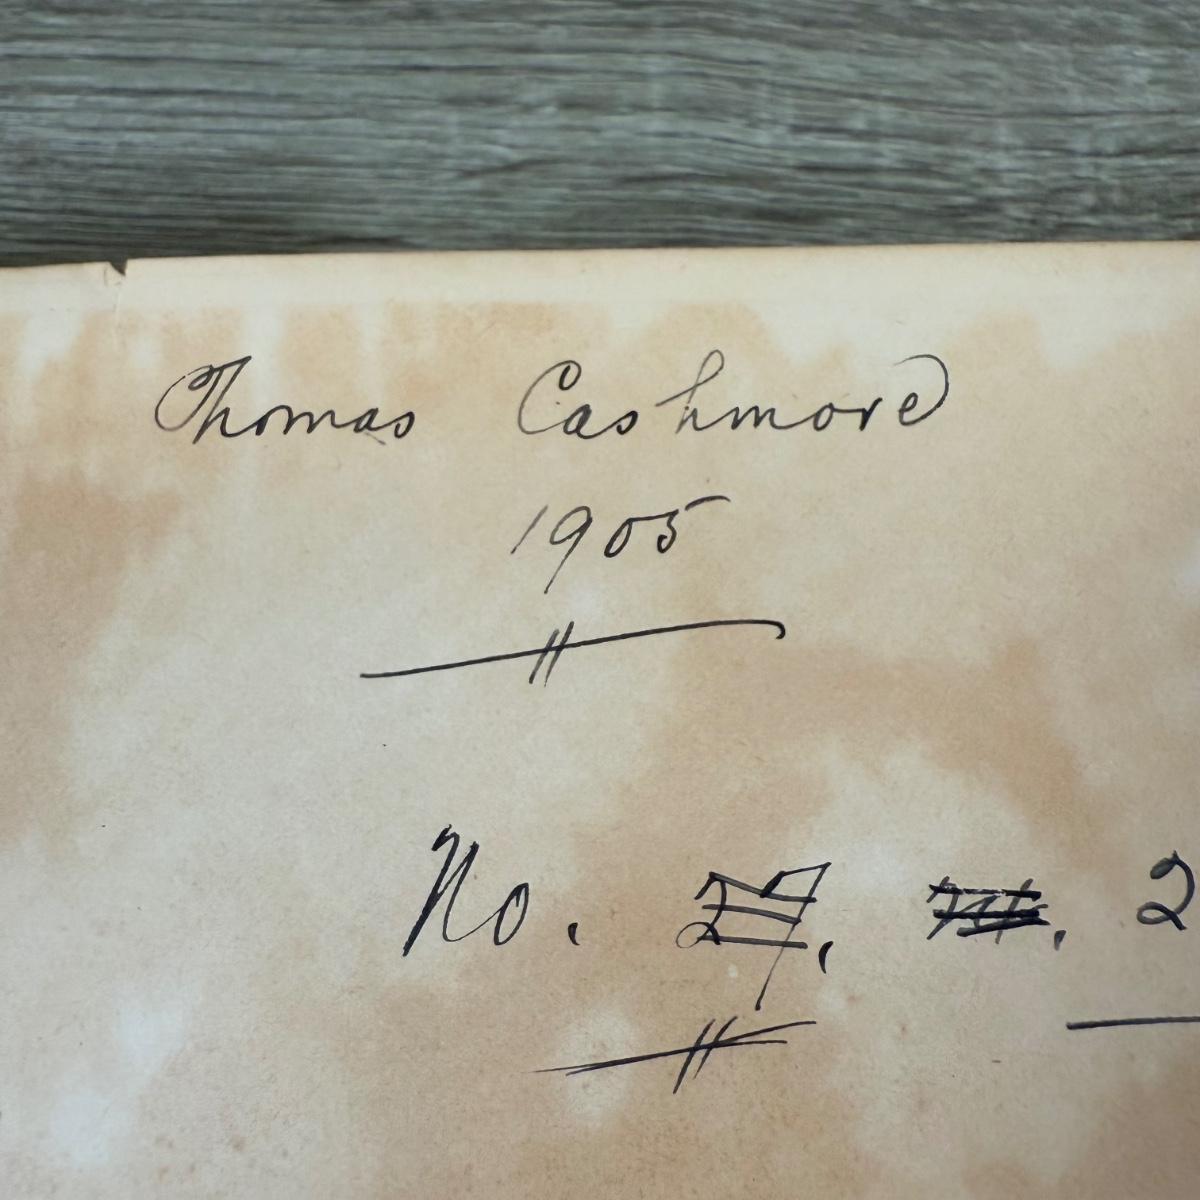 Thomas Cashmore
1905
No. 27, . 2